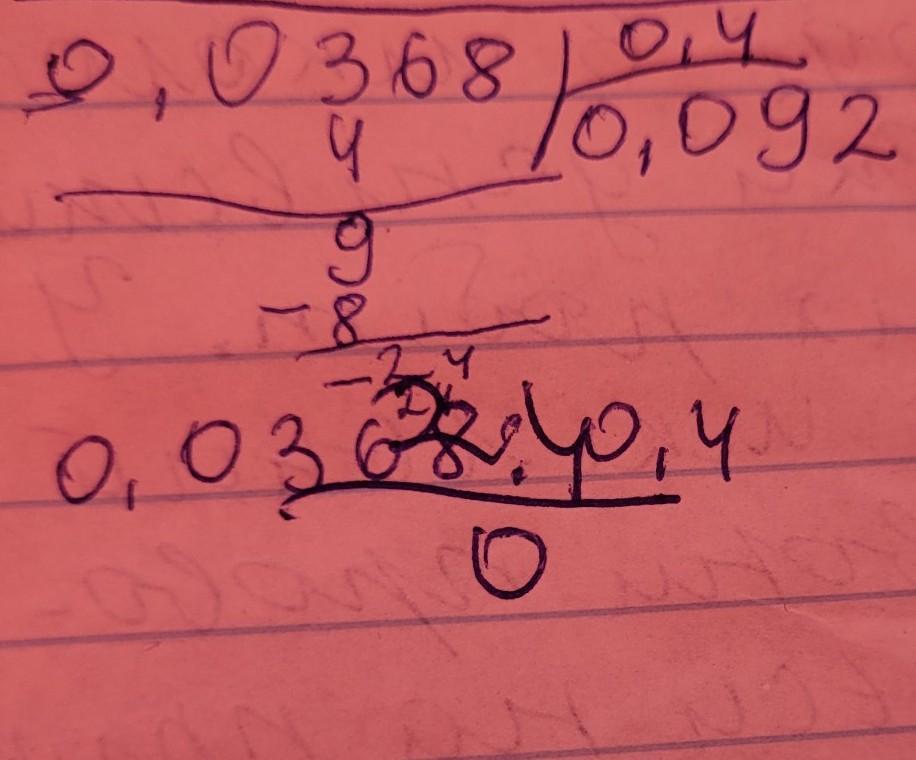 0,0368 0,4
4 0,092
9
-8
-24
0,0368:0,4
0